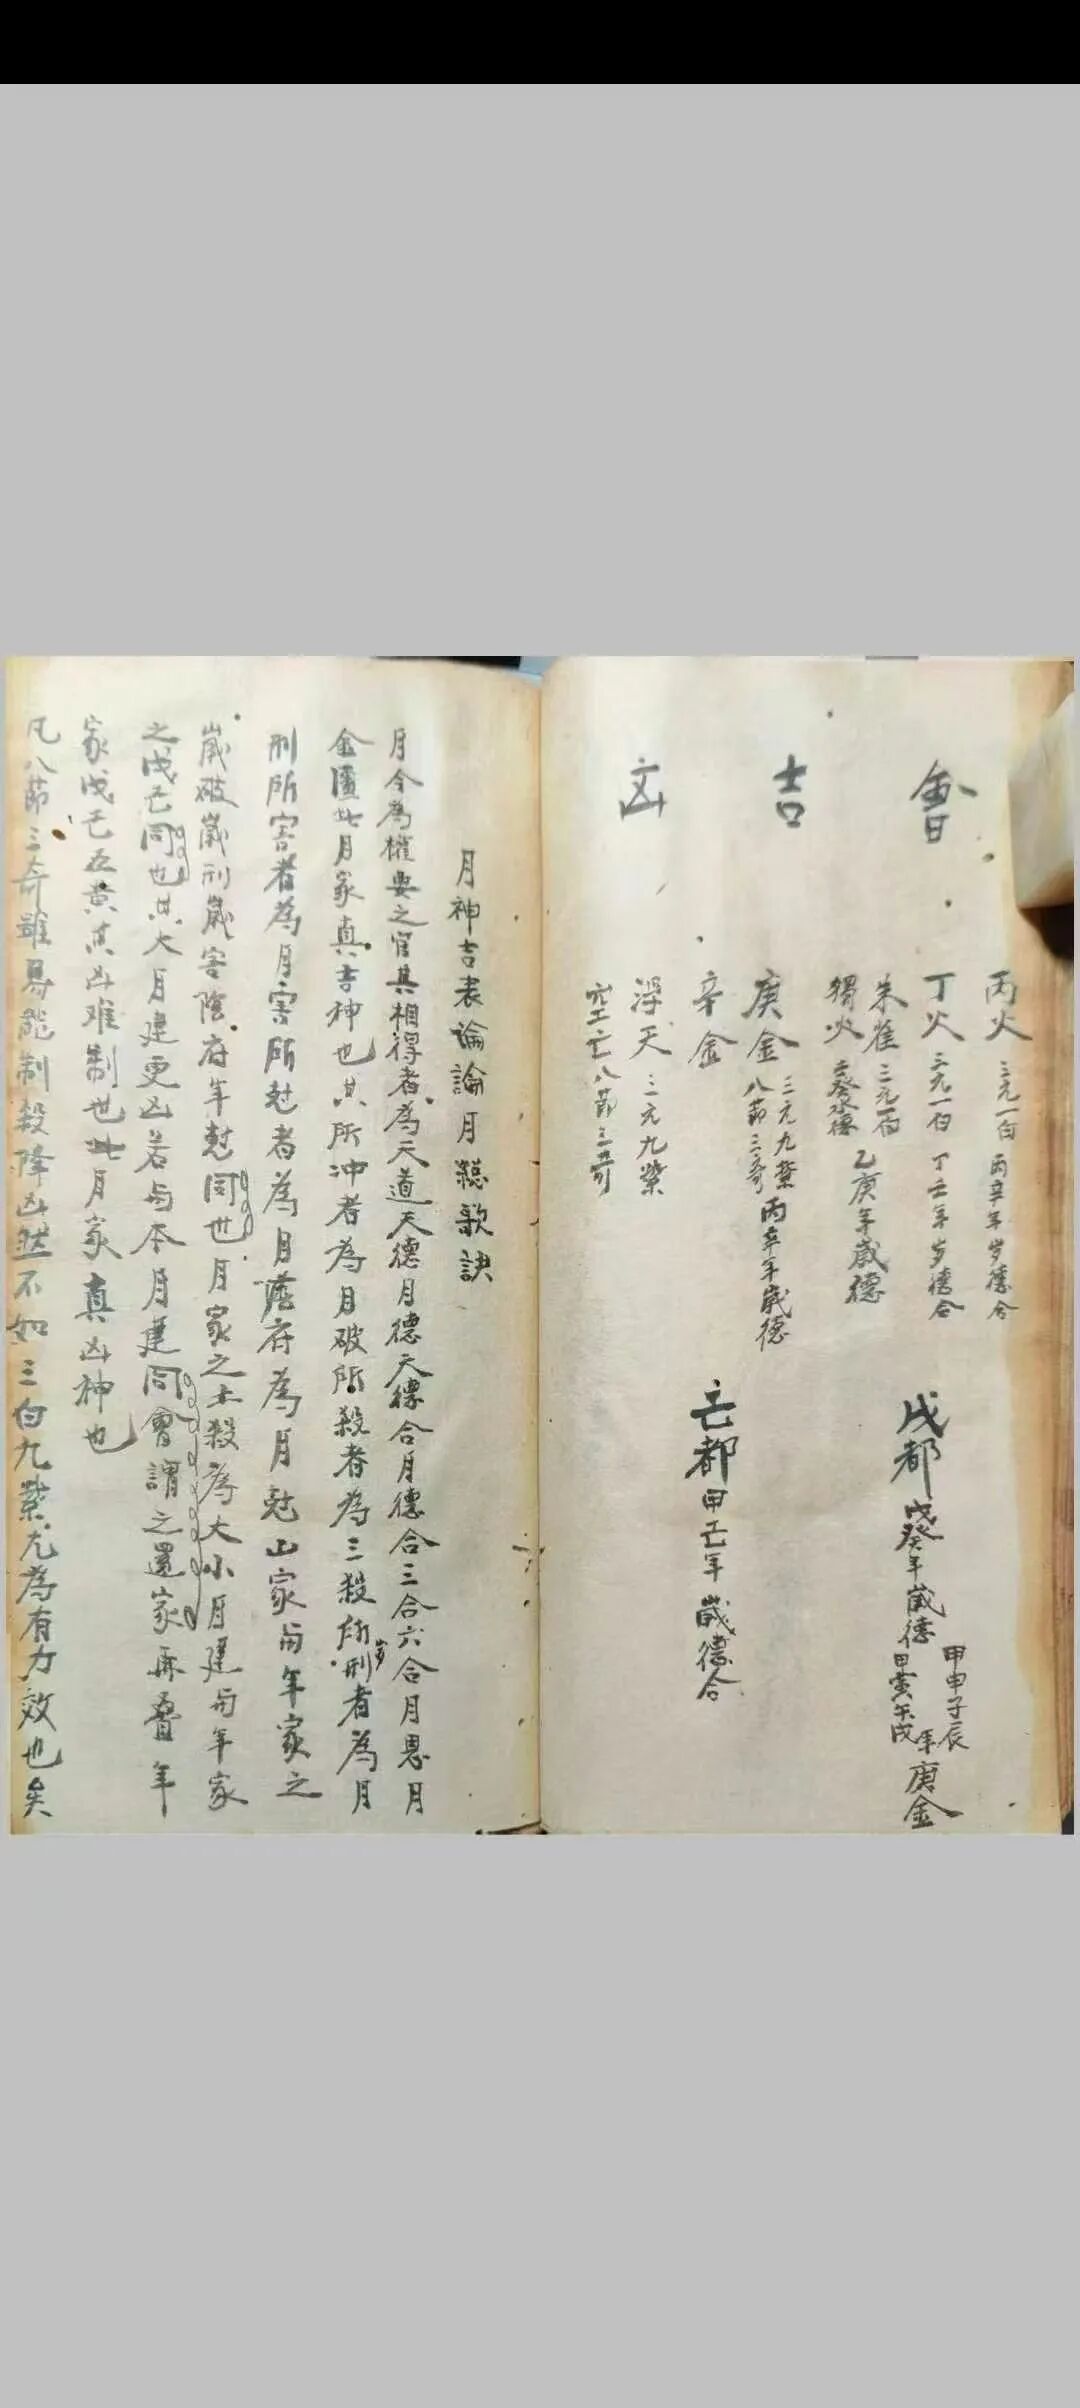 會
吉
凶
丙火 三元一白 丙辛年岁德合
丁火 三元一白 丁壬年岁德合
朱雀 三元一白
獨火 壬癸水德 乙庚年歲德
庚金 三元九紫 八節三奇 丙辛年歲德
辛金
浮天 三元九紫
空亡 八節三奇
戊都 戊癸年歲德 甲申子辰 甲寅午戌 年 庚金
己都 甲己年歲德合
月神吉表論論月總歌訣
月令為權要之官其相得者為天道天德月德天德合月德合三合六合月恩月
金匱此月家真吉神也其所冲者為月破所殺者為三殺所刑者為月
刑所害者為月害所尅者為月陰府為月尅山家與年家之
歲破歲刑歲害陰府年尅同也月家之土殺為大小月建与年家
之戊己同也其大月建更凶若与本月建同會謂之還家再叠年
家戊己五黄其凶难制也此月家真凶神也
凡八節三奇雖易能制殺降凶然不如三白九紫尤為有力效也矣